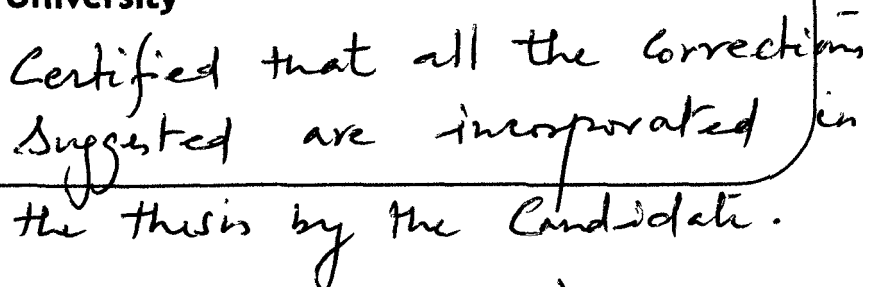 University
Certified that all the Corrections
Suggested are incorporated in
the thesis by the Candidate.